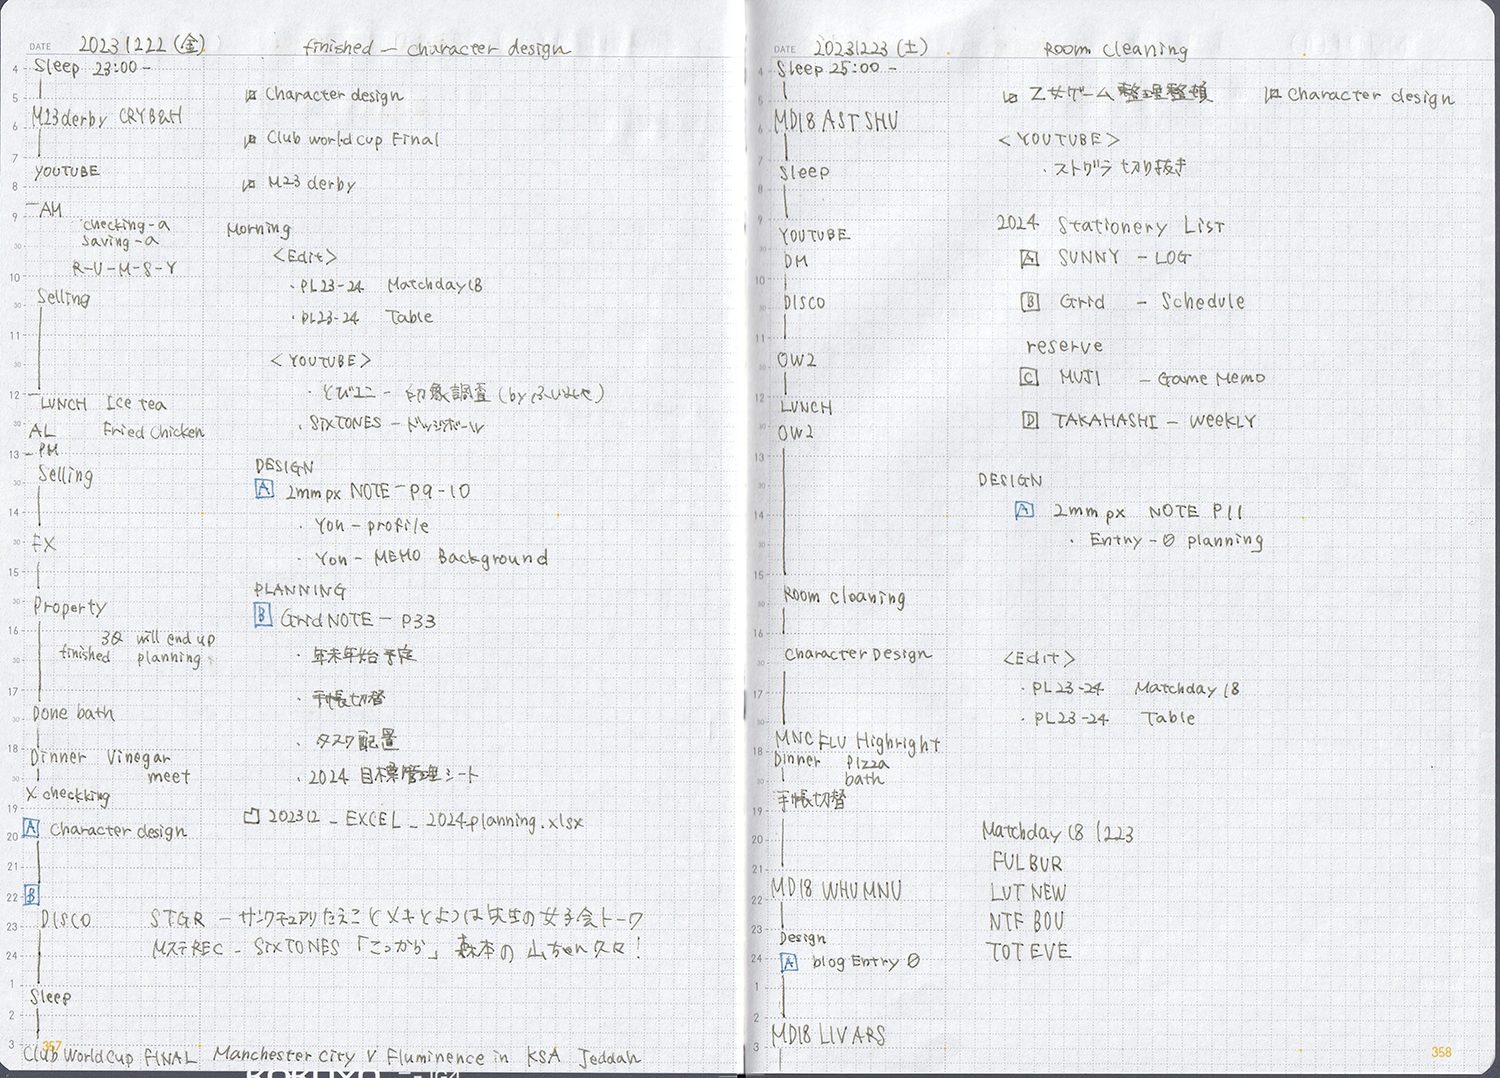 DATE 20231222 (金) finished - character design
Sleep 23:00 -
M23 derby CRYB&H
YOUTUBE
AM
checking-a
saving-a
R-U-M-S-Y
Selling
LUNCH Ice tea
AL Fried chicken
PM
Selling
FX
Property
30 will end up
finished planning
Done bath
Dinner Vinegar
meet
X checkking
A Character design
B
DISCO STGR - サンクチュアリ たえこ (メキとよ)は先生の女子会トーク
MステREC - SixTONES 「こっから」 森本の 山ちゃん久々!
Sleep
Club World Cup FINAL Manchester City V Fluminence in KSA Jeddah
357
Character design
Club world cup Final
M23 derby
Morning
<Edit>
・PL23-24 Matchday18
・PL23-24 Table
<YOUTUBE>
・とびユニ - 印象調査 (by
・SixTONES - ドッジボール
DESIGN
A 2mm px NOTE - P9-10
・You - profile
・You - MEMO Background
PLANNING
B Grid NOTE - P33
・年末年始予定
・手帳切替
・タスク配置
・2024 目標管理シート
202312_EXCEL_2024planning.xlsx
DATE 20231223 (土) Room cleaning
Sleep 25:00 -
MD18 AST SHU
Sleep
YOUTUBE
DM
DISCO
OW2
LUNCH
OW2
Room cleaning
Character Design
MNC FLU Highright
Dinner Pizza
bath
手帳切替
MD18 WHU MNU
Design
A blog Entry 0
MD18 LIV ARS
乙女ゲーム整理整頓 Character design
<YOUTUBE>
・ストグラ 切り抜き
2024 Stationery List
A SUNNY - LOG
B Grid - Schedule
reserve
C MUJI - Game Memo
D TAKAHASHI - Weekly
DESIGN
A 2mm px NOTE P11
・Entry-0 planning
<Edit>
・PL23-24 Matchday 18
・PL23-24 Table
Matchday 18 1223
FUL BUR
LUT NEW
NTF BOU
TOT EVE
358